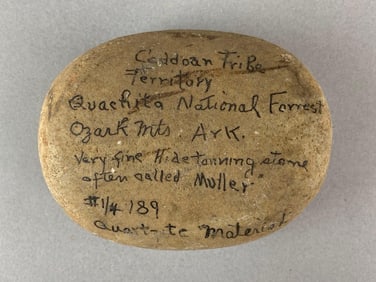 Caddoan Tribe
Territory
Quachita National Forrest
Ozark Mts. Ark.
Very fine Hidetanning stone
often called Muller"
#1/4 189
Quart-te Material